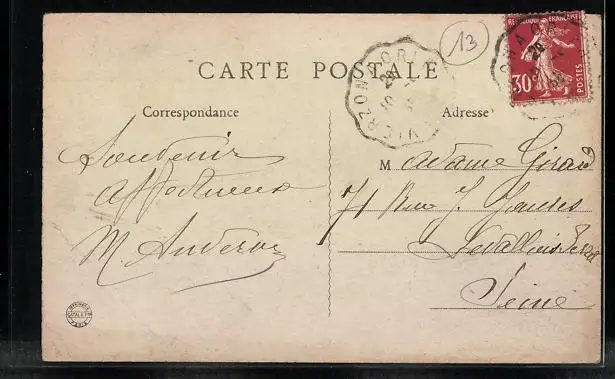 13
CARTE POSTALE
REPUBLIQUE FRANÇAISE
30
POSTES
VIERZON
Correspondance
Adresse
Souvenir
affectueux
M.
Madame Girard
71 Rue J. Jaurès
Levallois Perret
Seine